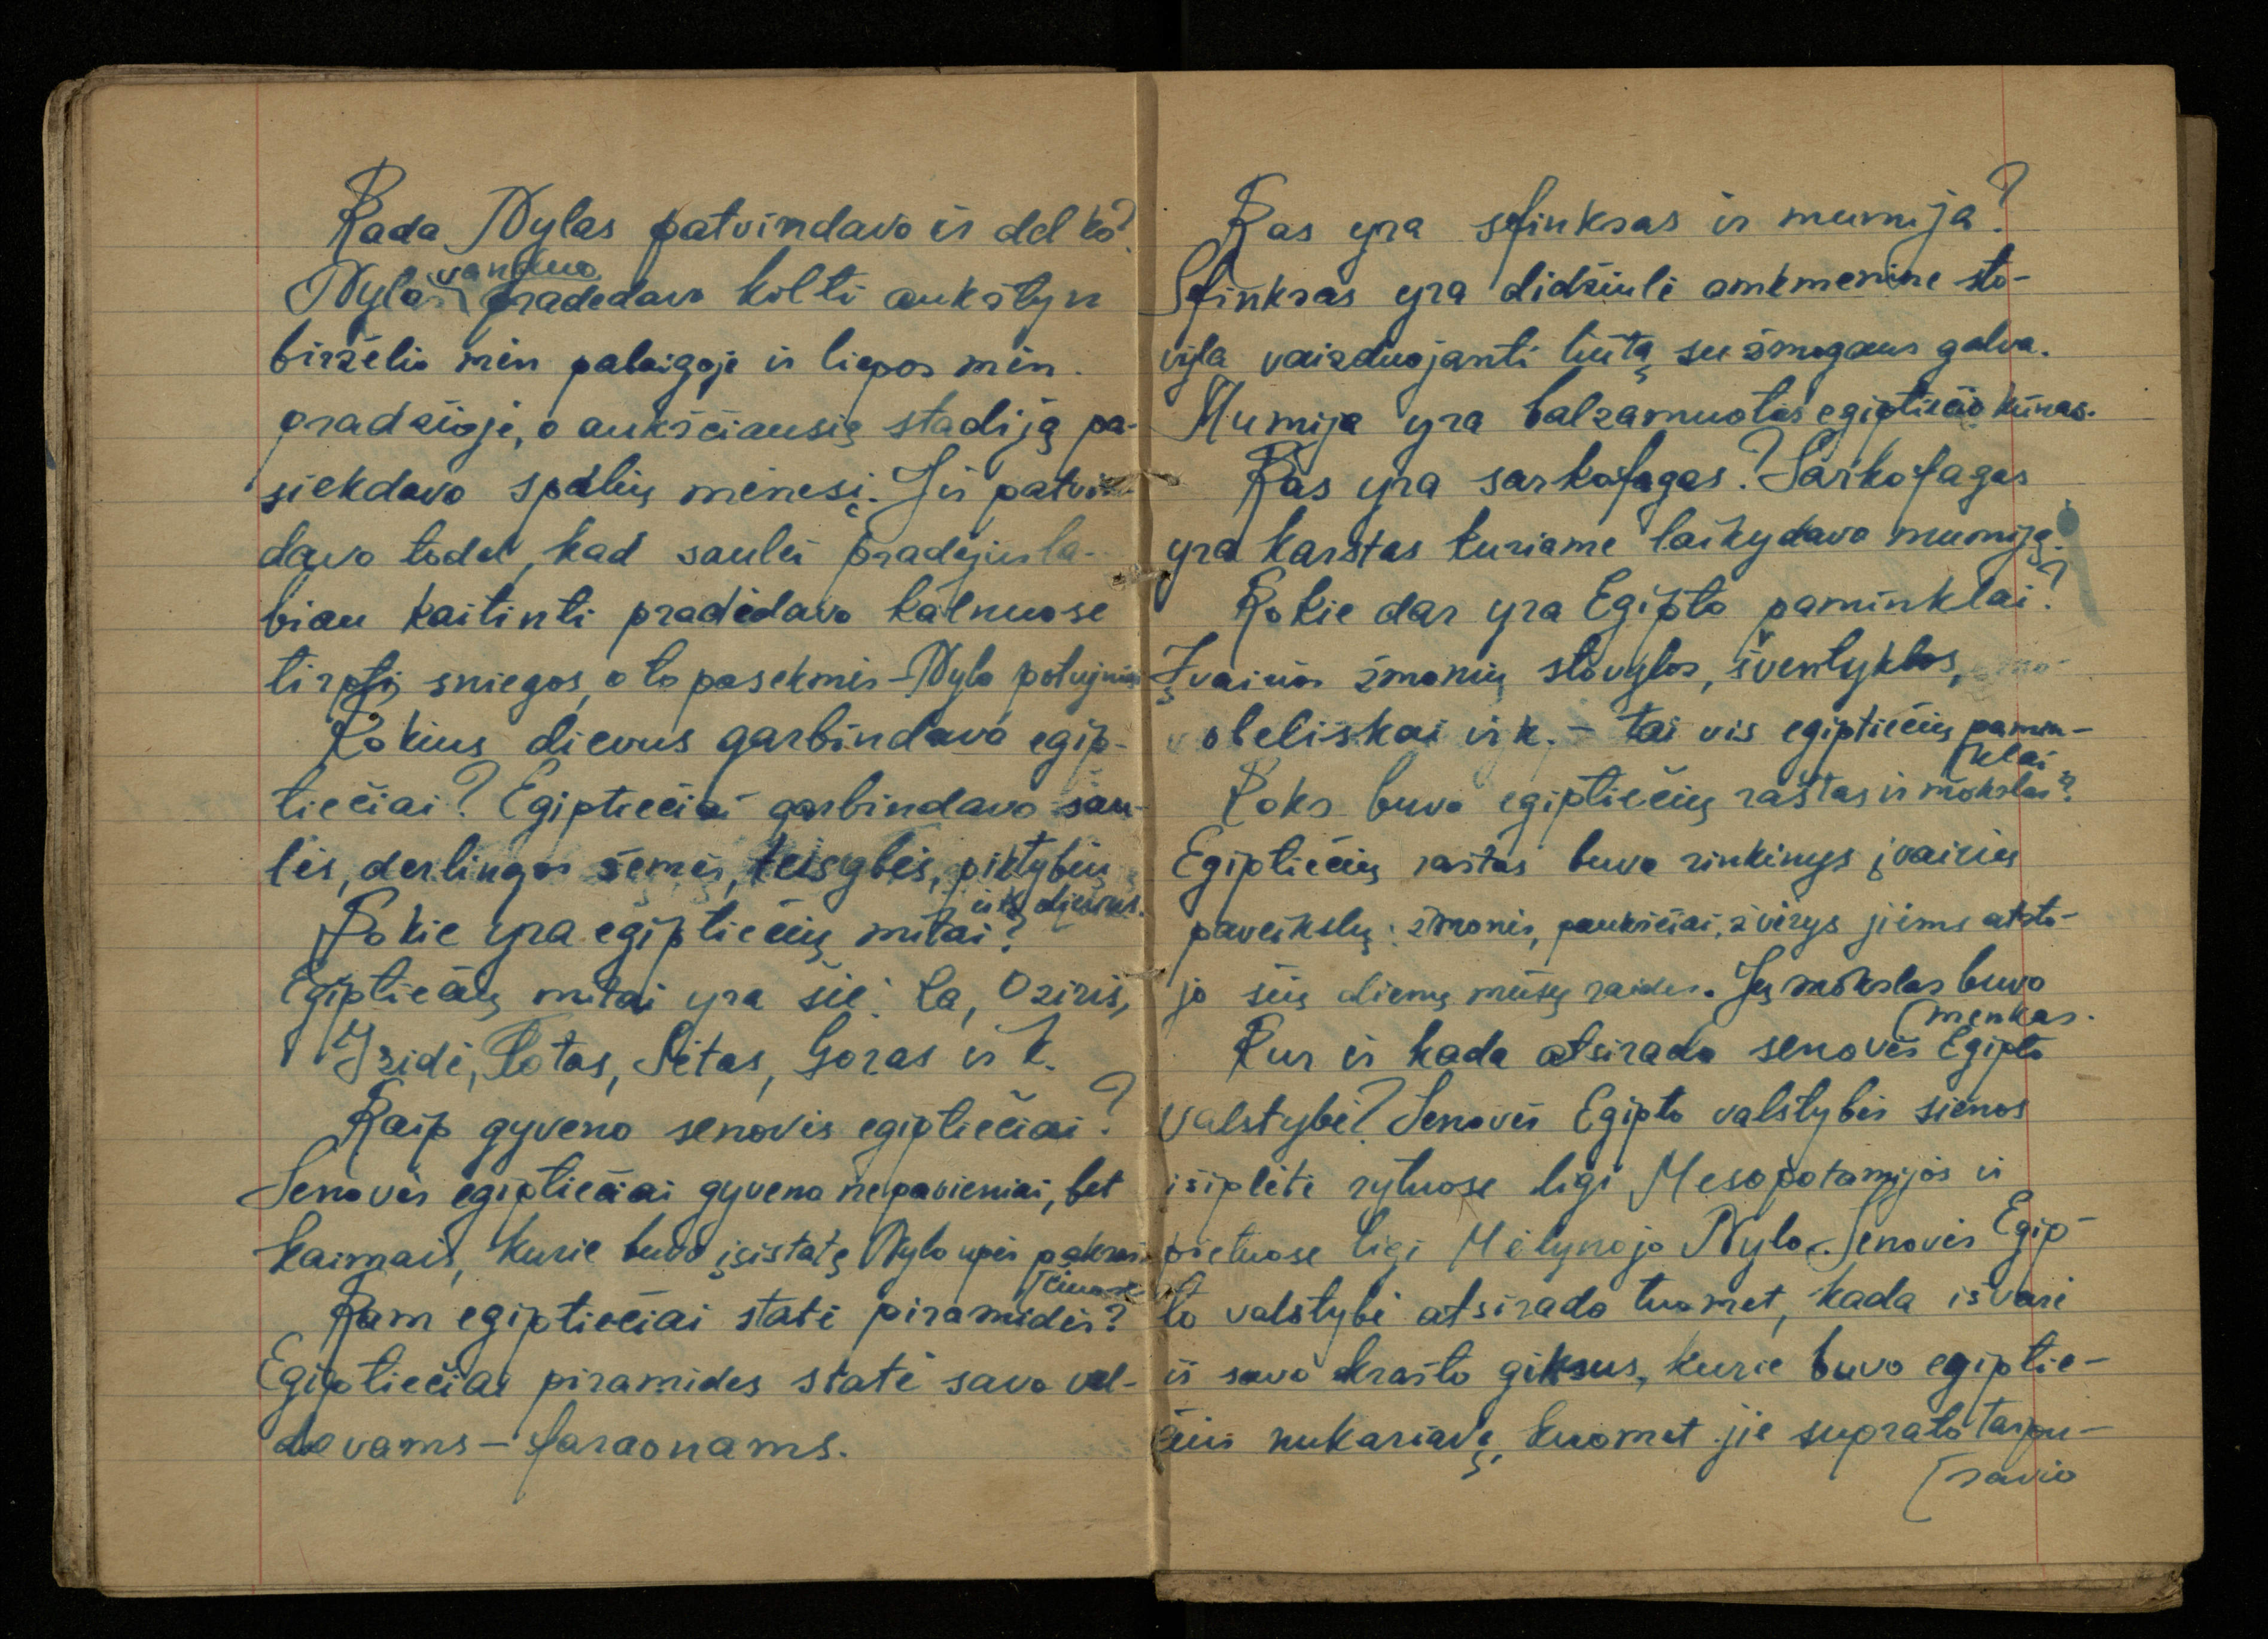 Kada Nylas patvindavo ir dėl ko?
Nylo vanduo pradėdavo kilti aukštyn
birželio mėn pabaigoje ir liepos mėn.
pradžioje, o aukščiausią stadiją pa-
siekdavo spalių mėnesį. Jis patvin-
davo todėl, kad saulei pradėjus la-
biau kaitinti pradėdavo kalnuose
tirpti sniegas, o to pasekmės - Nylo potvynis
Kokius dievus garbindavo egip-
tiečiai? Egiptiečiai garbindavo sau-
lės, derlingos žemės, teisybės, piktybių
ir k. dievus.
Kokie yra egiptiečių mitai?
Egiptiečių mitai yra šie: Ra, Oziris,
Izidė, Ptotas, Setas, Goras ir k.
Kaip gyveno senovės egiptiečiai?
Senovės egiptiečiai gyveno nepavieniai, bet
kaimais, kurie buvo įsistatę Nylo upės pakraš-
čiuose
Kam egiptiečiai statė piramidės?
Egiptiečiai piramides statė savo val-
dovams - faraonams.
Kas yra sfinksas ir mumija?
Sfinksas yra didžiulė amkmeninė sto-
vyla vaizduojanti liūtą su žmogaus galva.
Mumija yra balzamuotas egiptiečio kūnas.
Kas yra sarkofagas? Sarkofagas
yra karstas kuriame laikydavo mumiją.
Kokie dar yra Egipto paminklai?
Įvairios žmonių stovylos, šventyklos,
obeliskai ir k. - tai vis egiptiečių pamin-
klai
Koks buvo egiptiečių raštas ir mokslas?
Egiptiečių raštas buvo rinkinys įvairių
paveikslų: žmonės, paukščiai, žvėrys jiems atsto-
jo šių dienų mūsų raides. Jų mokslas buvo
menkas.
Kur ir kada atsirado senovės Egipto
valstybė? Senovės Egipto valstybės sienos
išiplėtė rytuose ligi Mesopotamijos ir
pietuose ligi Mėlynojo Nylo. Senovės Egip-
to valstybė atsirado tuomet, kada išvarė
iš savo krašto giksus, kurie buvo egiptie-
čius nukariavę, kuomet jie suprato tarpu-
savio